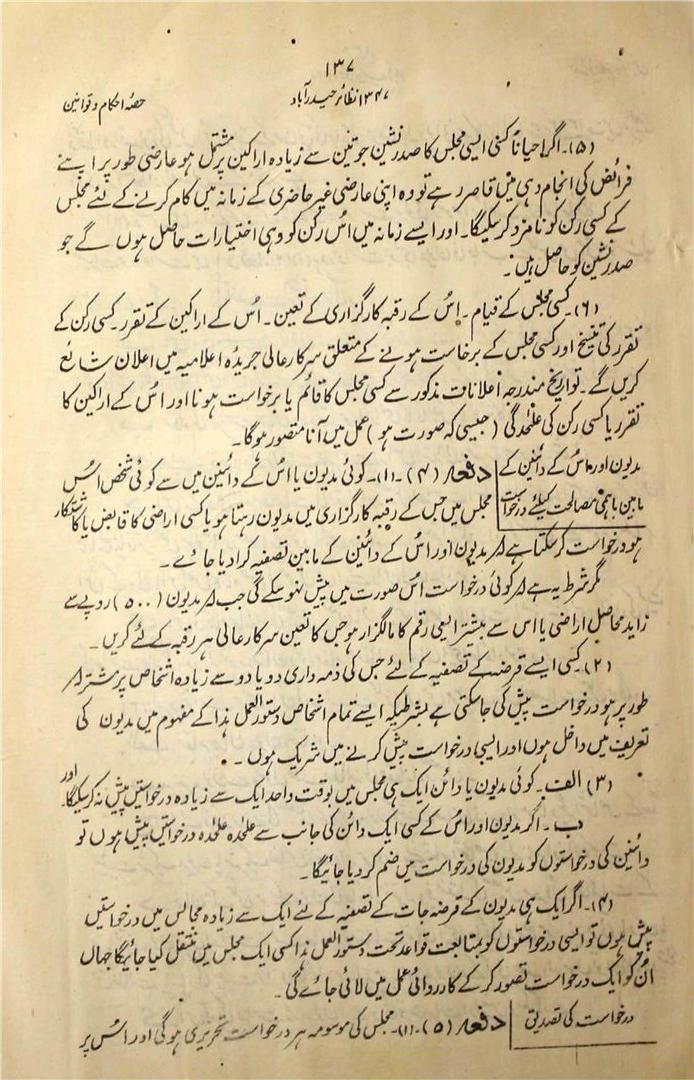 ۱۳۷
۱۳۴۷ نظائر حیدرآباد
حصہ احکام و قوانین
(۵)۔ اگر احیاناً کسی ایسی مجلس کا صدر نشین جو تین سے زیادہ اراکین پر مشتمل ہو عارضی طور پر اپنے
فرائض کی انجام دہی میں قاصر رہے تو وہ اپنی عارضی غیر حاضری کے زمانہ میں کام کرنے کے لئے مجلس
کے کسی رکن کو نامزد کر سکیگا۔ اور ایسے زمانہ میں اُس رکن کو وہی اختیارات حاصل ہوں گے جو
صدر نشین کو حاصل ہیں۔
(۶)۔ کسی مجلس کے قیام۔ اِس کے رقبہ کارگزاری کے تعین۔ اُس کے اراکین کے تقرر۔ کسی رکن کے
تقرر کی تنسیخ اور کسی مجلس کے برخاست ہونے کے متعلق سرکار عالی جریدۂ اعلامیہ میں اعلان شائع
کریں گے۔ تواریخ مندرجہ اعلانات مذکور سے کسی مجلس کا قائم یا برخواست ہونا اور اُس کے اراکین کا
تقرر یا کسی رکن کی علٰحدگی (جیسی کہ صورت ہو) عمل میں آنا متصور ہوگا۔
مدیون اور اس کے دائنین کے
مابین باہمی مصالحت کیلئے درخواست
دفعہ (۴)۔(۱)۔ کوئی مدیون یا اُس کے دائنین میں سے کوئی شخص اُس
مجلس میں جس کے رقبہ کارگزاری میں مدیون رہتا ہو یا کسی اراضی کا قابض یا کاشتکار
ہو درخواست کرسکتا ہے کہ مدیون اور اُس کے دائنین کے مابین تصفیہ کرا دیا جائے۔
مگر شرط یہ ہے کہ کوئی درخواست اُس صورت میں پیش نہو سکے گی جب کہ مدیون (۵۰۰) روپے سے
زاید محاصل اراضی یا اس سے بیشتر ایسی رقم کا مالگزار ہو جس کا تعین سرکار عالی ہر رقبہ کے لئے کریں۔
(۲)۔ کسی ایسے قرضہ کے تصفیہ کے لئے جس کی ذمہ داری دو یا دو سے زیادہ اشخاص پر مشترکہ
طور پر ہو درخواست پیش کی جاسکتی ہے بشرطیکہ ایسے تمام اشخاص دستور العمل ہذا کے مفہوم میں مدیون کی
تعریف میں داخل ہوں اور ایسی درخواست پیش کرنے میں شریک ہوں۔
(۳) الف۔ کوئی مدیون یا دائن ایک ہی مجلس میں بوقت واحد ایک سے زیادہ درخواستیں پیش نہ کرسکیگا۔ اور
ب۔ اگر مدیون اور اُس کے کسی ایک دائن کی جانب سے علٰحدہ علٰحدہ درخواستیں پیش ہوں تو
دائنین کی درخواستوں کو مدیون کی درخواست میں ضم کردیا جائیگا۔
(۴)۔ اگر ایک ہی مدیون کے قرضہ جات کے تصفیہ کے لئے ایک سے زیادہ مجالس میں درخواستیں
پیش ہوں تو ایسی درخواستوں کو بمتابعت قواعد تحت دستور العمل ہذا کسی ایک مجلس میں منتقل کیا جائیگا جہاں
اُن کو ایک درخواست تصور کرکے کارروائی عمل میں لائی جائے گی۔
درخواست کی تصدیق
دفعہ (۵)۔(۱)۔ مجلس کی موسومہ ہر درخواست تحریری ہوگی اور اُس پر